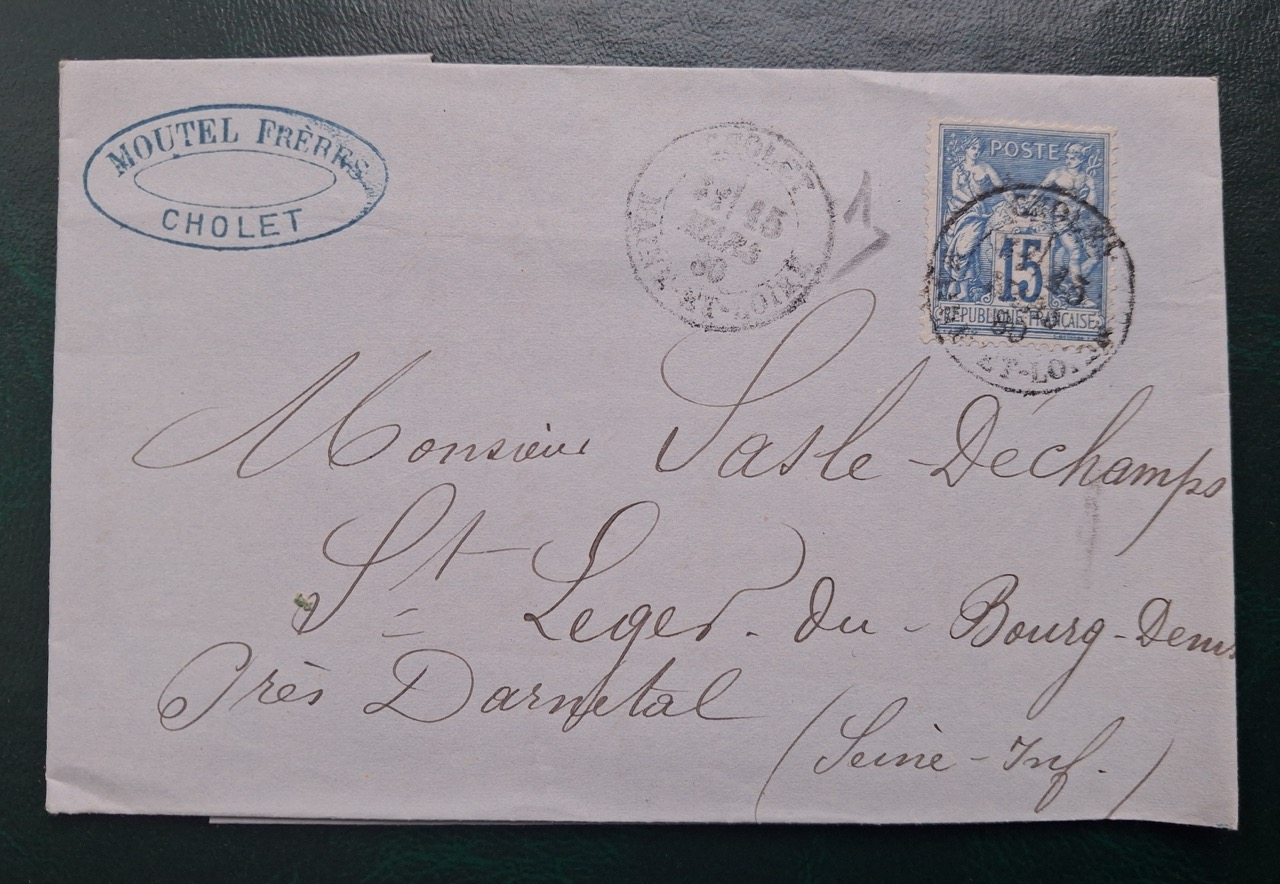 MOUTEL FRÈRES
CHOLET
CHOLET
15
MARS
80
MAINE-ET-LOIRE
1
POSTE
15
REPUBLIQUE FRANCAISE
CHOLET
15
80
ET-LOIRE
Monsieur Sasle-Déchamps
St Leger-du-Bourg-Denis
Près Darnetal
(Seine-Inf.)